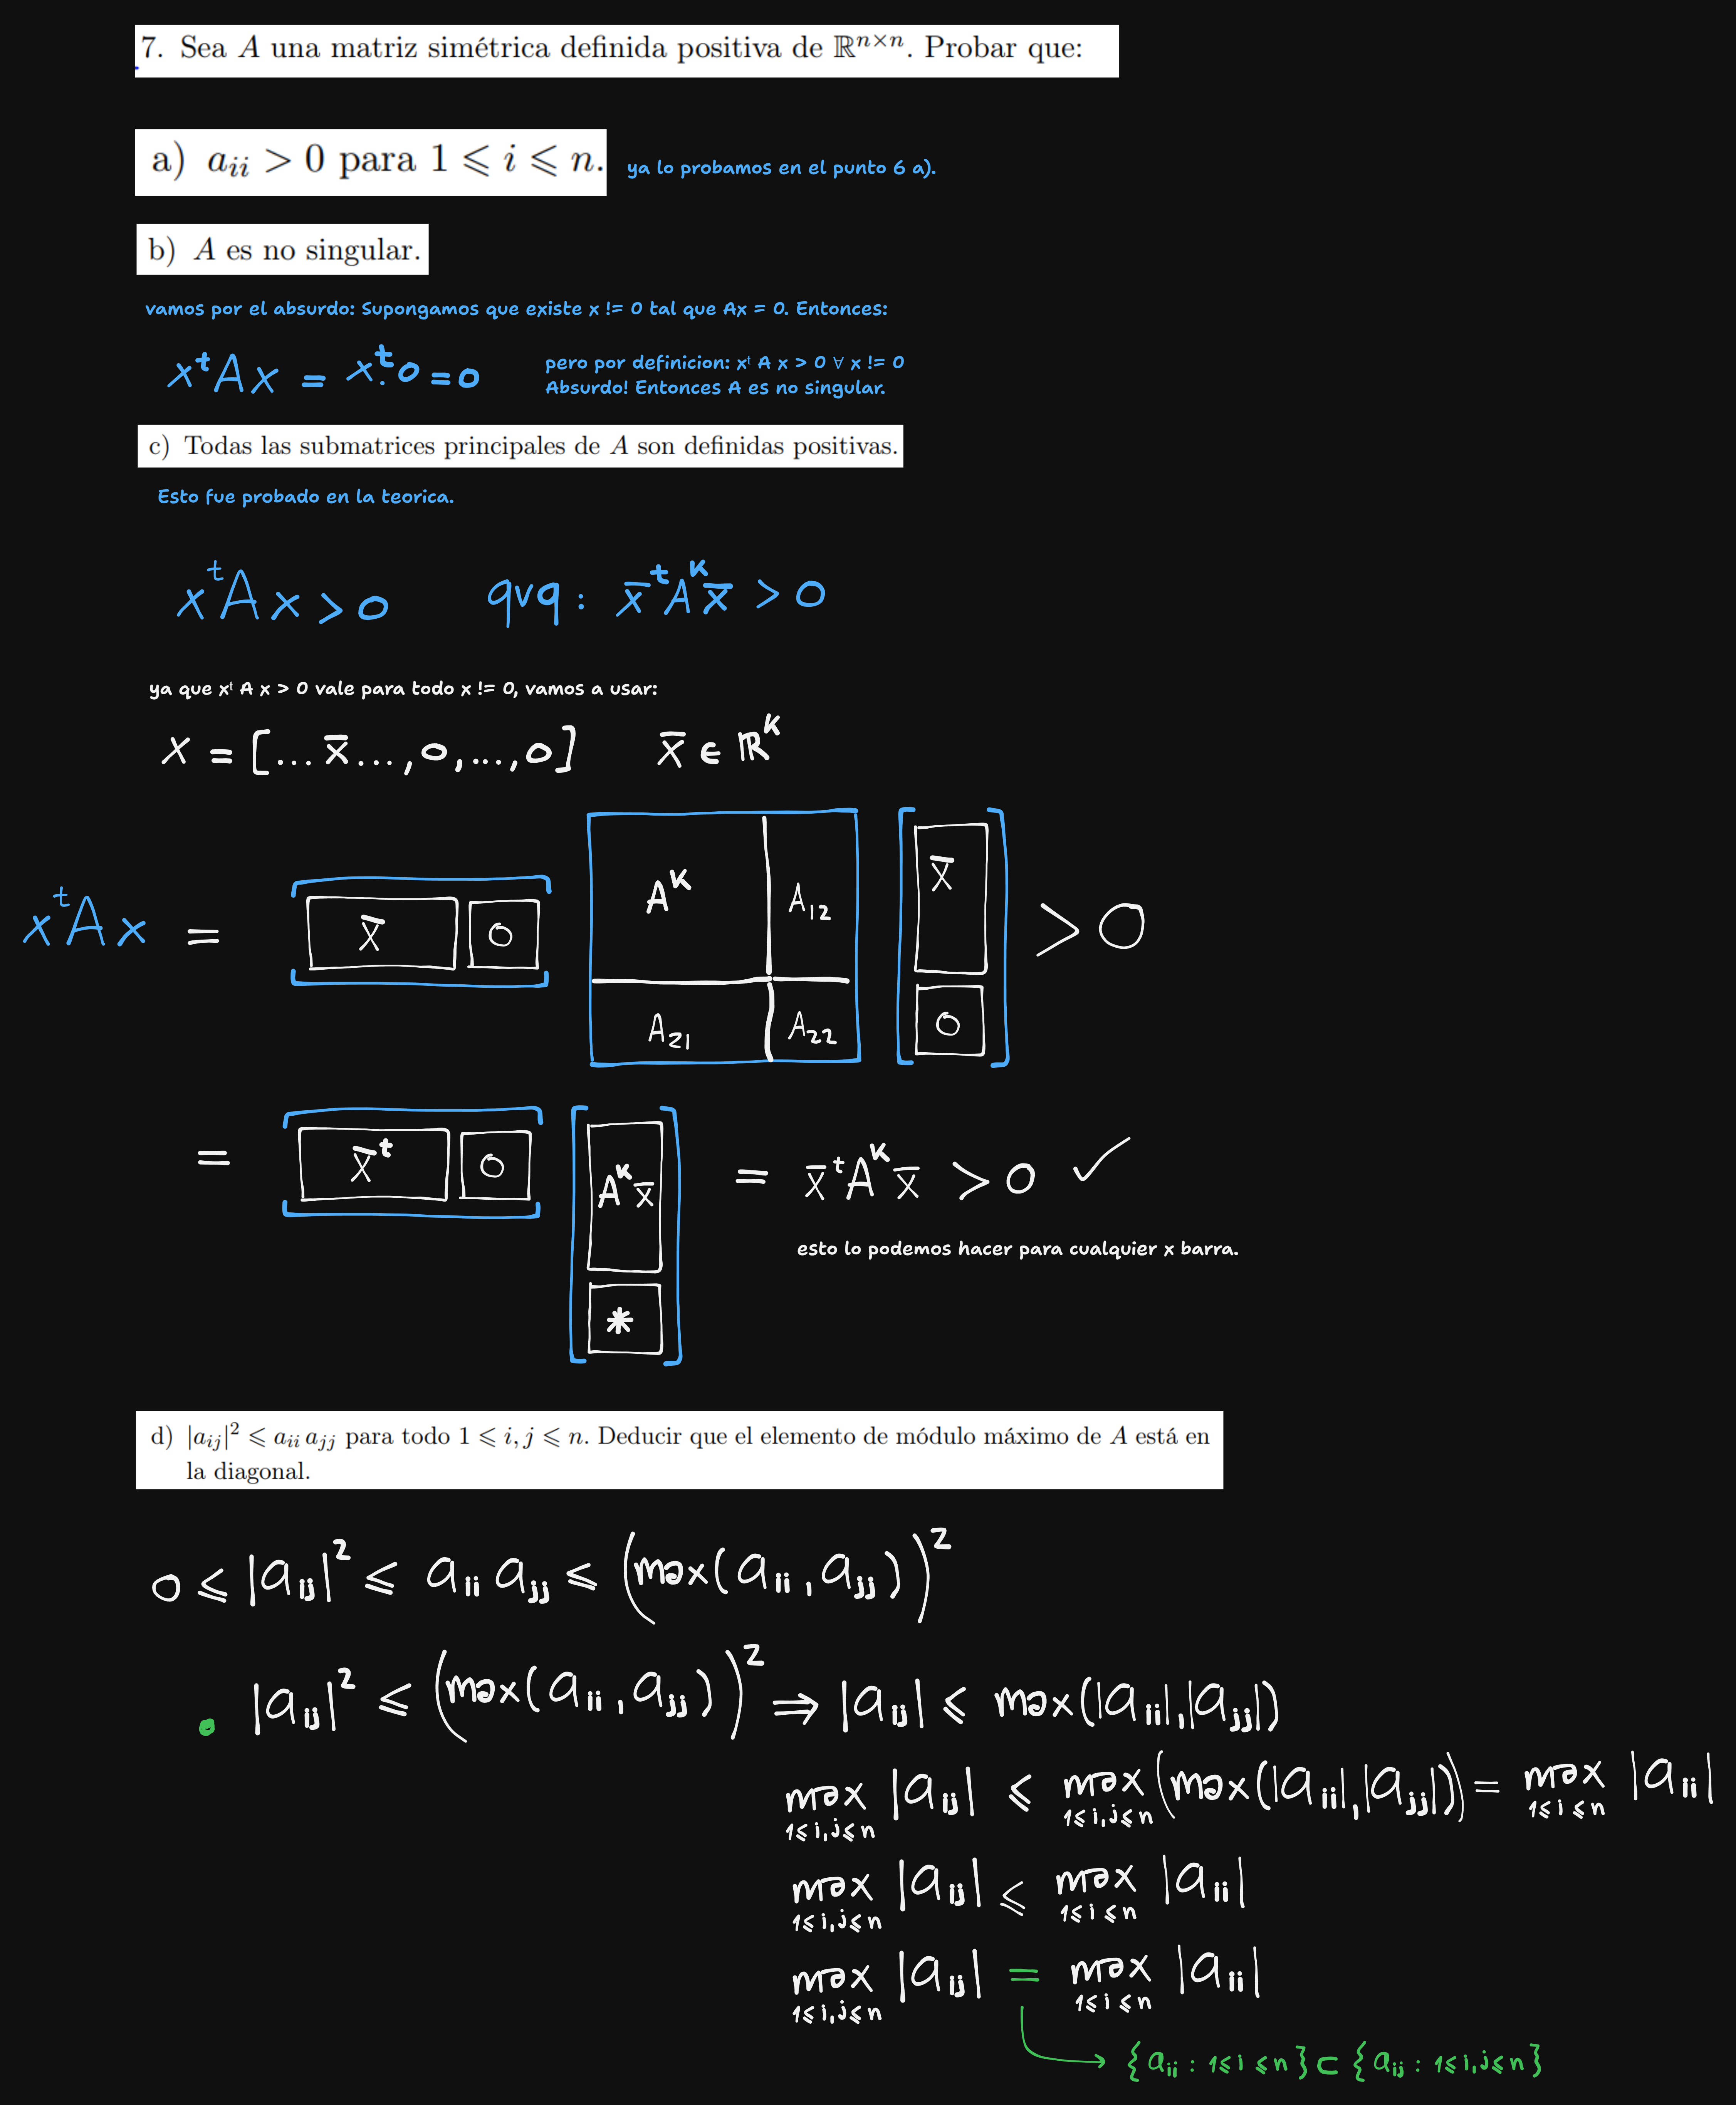 7. Sea A una matriz simétrica definida positiva de ℝⁿˣⁿ. Probar que:
a) aᵢᵢ > 0 para 1 ⩽ i ⩽ n.
ya lo probamos en el punto 6 a).
b) A es no singular.
vamos por el absurdo: Supongamos que existe x != 0 tal que Ax = 0. Entonces:
xᵗAx = xᵗ.0 = 0
pero por definicion: xᵗ A x > 0 ∀ x != 0
Absurdo! Entonces A es no singular.
c) Todas las submatrices principales de A son definidas positivas.
Esto fue probado en la teorica.
xᵗAx > 0 qvq: x̄ᵗAᴷx̄ > 0
ya que xᵗ A x > 0 vale para todo x != 0, vamos a usar:
x = [... x̄ ..., 0, ..., 0] x̄ ∈ ℝᴷ
xᵗAx = [x̄ 0] [Aᴷ A₁₂ [x̄ > 0
A₂₁ A₂₂] 0]
= [x̄ᵗ 0] [Aᴷx̄ = x̄ᵗAᴷx̄ > 0 ✓
*]
esto lo podemos hacer para cualquier x barra.
d) |aᵢⱼ|² ⩽ aᵢᵢ aⱼⱼ para todo 1 ⩽ i, j ⩽ n. Deducir que el elemento de módulo máximo de A está en
la diagonal.
0 ⩽ |aᵢⱼ|² ⩽ aᵢᵢ aⱼⱼ ⩽ (max(aᵢᵢ, aⱼⱼ))²
|aᵢⱼ|² ⩽ (max(aᵢᵢ, aⱼⱼ))² ⇒ |aᵢⱼ| ⩽ max(|aᵢᵢ|, |aⱼⱼ|)
max |aᵢⱼ| ⩽ max (max(|aᵢᵢ|, |aⱼⱼ|)) = max |aᵢᵢ|
1⩽i,j⩽n 1⩽i,j⩽n 1⩽i⩽n
max |aᵢⱼ| ⩽ max |aᵢᵢ|
1⩽i,j⩽n 1⩽i⩽n
max |aᵢⱼ| = max |aᵢᵢ|
1⩽i,j⩽n 1⩽i⩽n
→ {aᵢᵢ : 1⩽i⩽n} ⊂ {aᵢⱼ : 1⩽i,j⩽n}